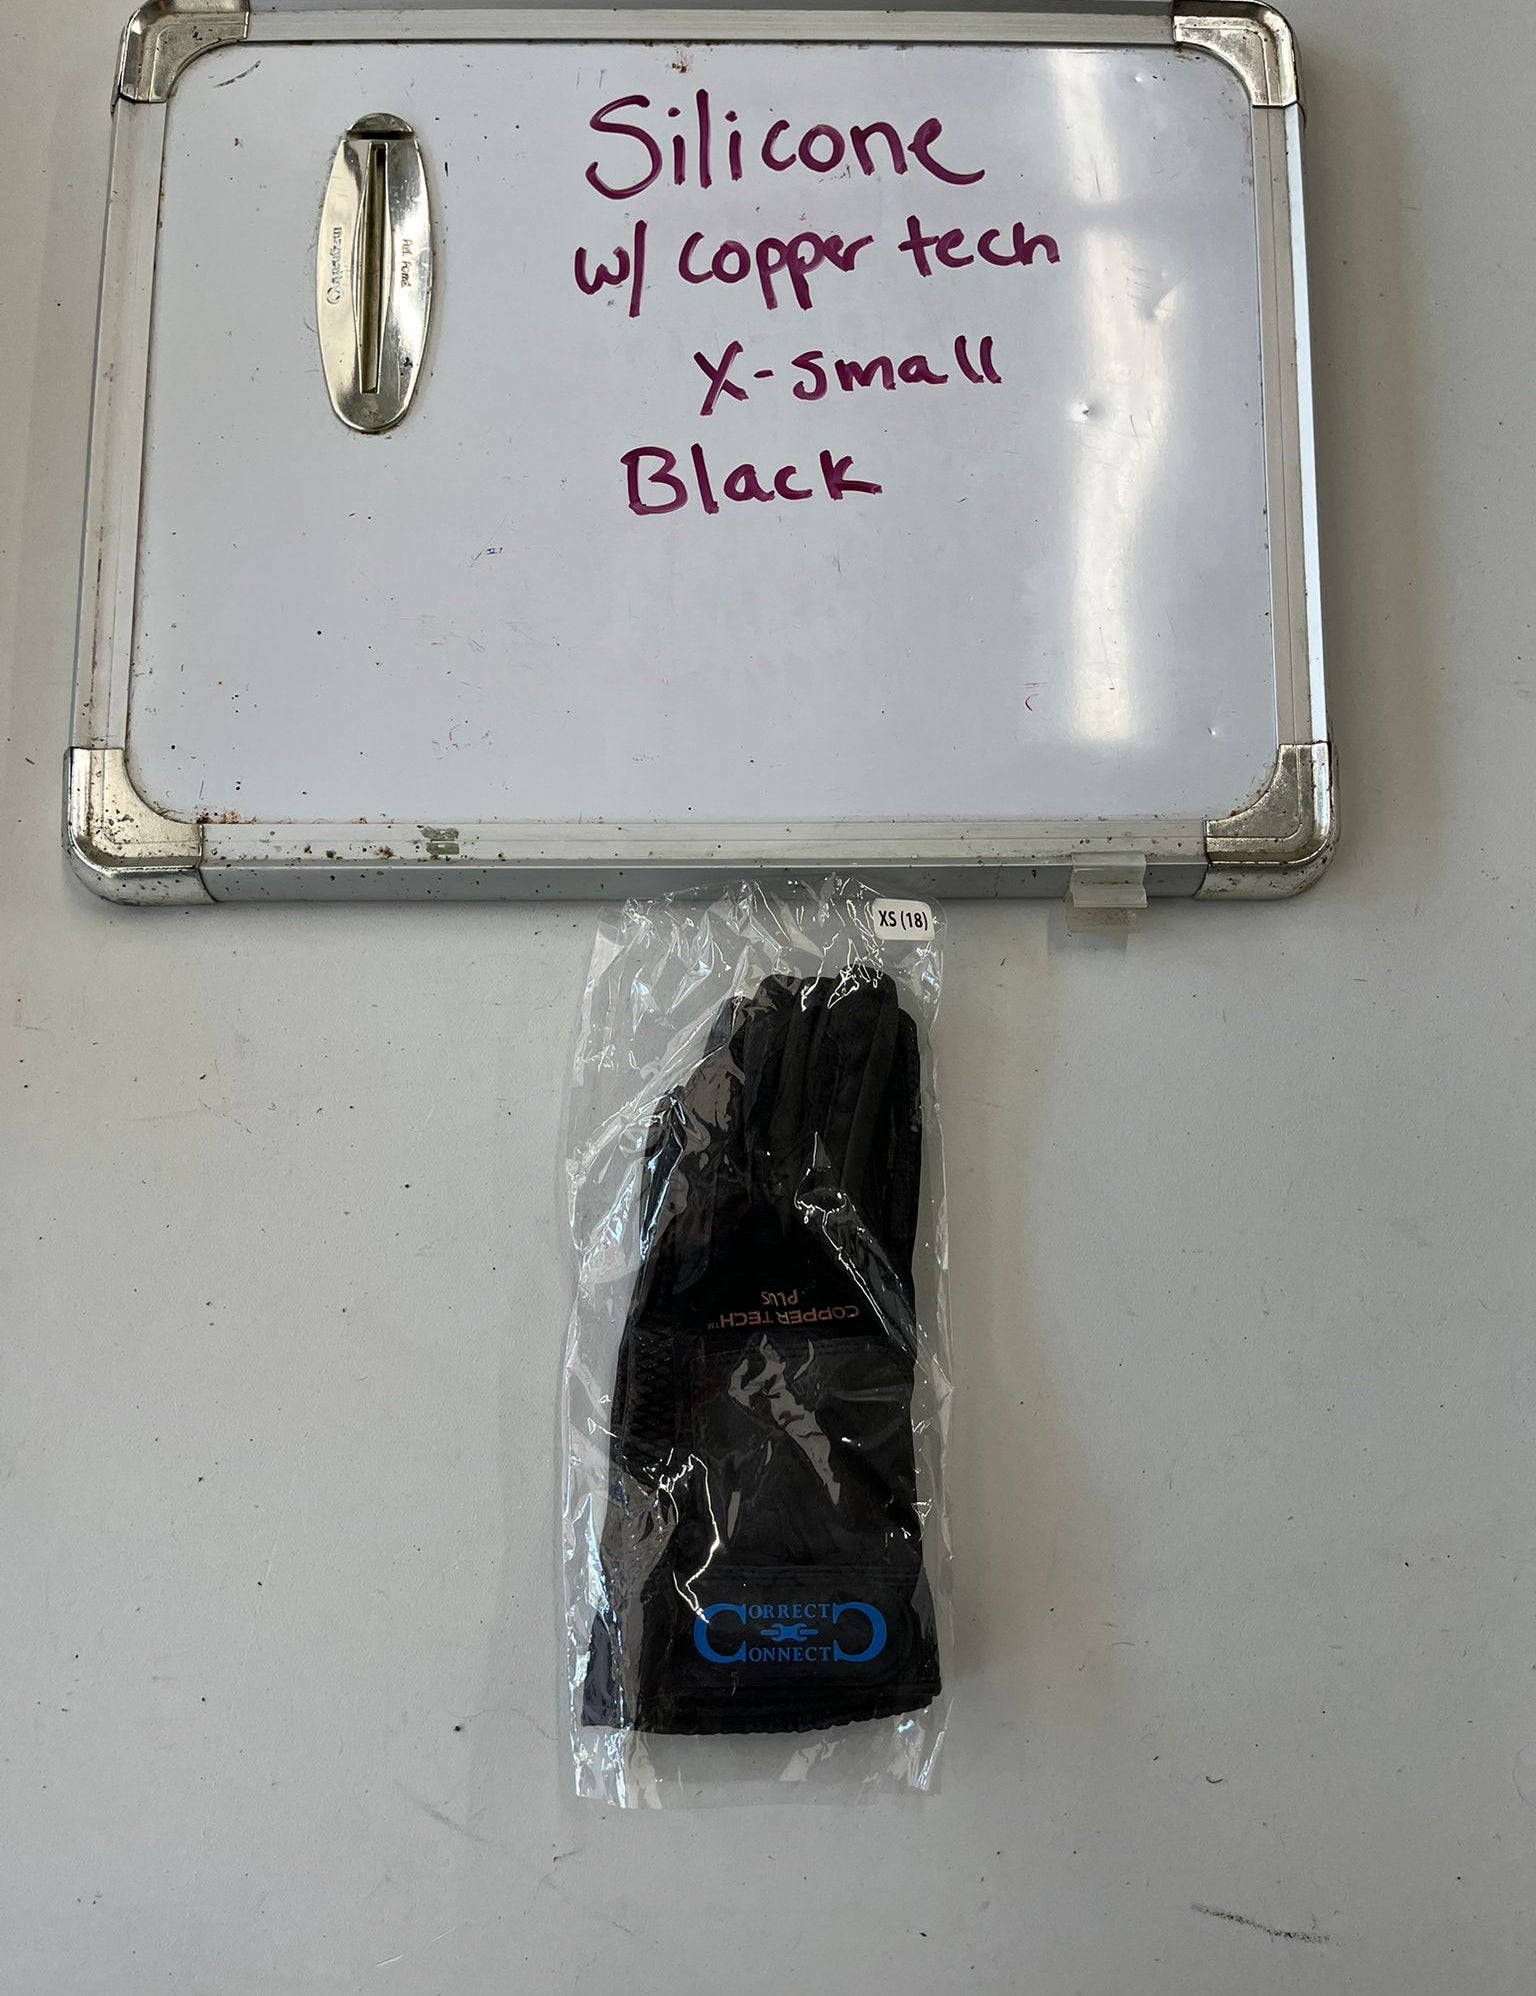 Silicone
w/ copper tech
X-small
Black
XS (18)
COPPER TECH™
PLUS
CORRECT
CONNECT